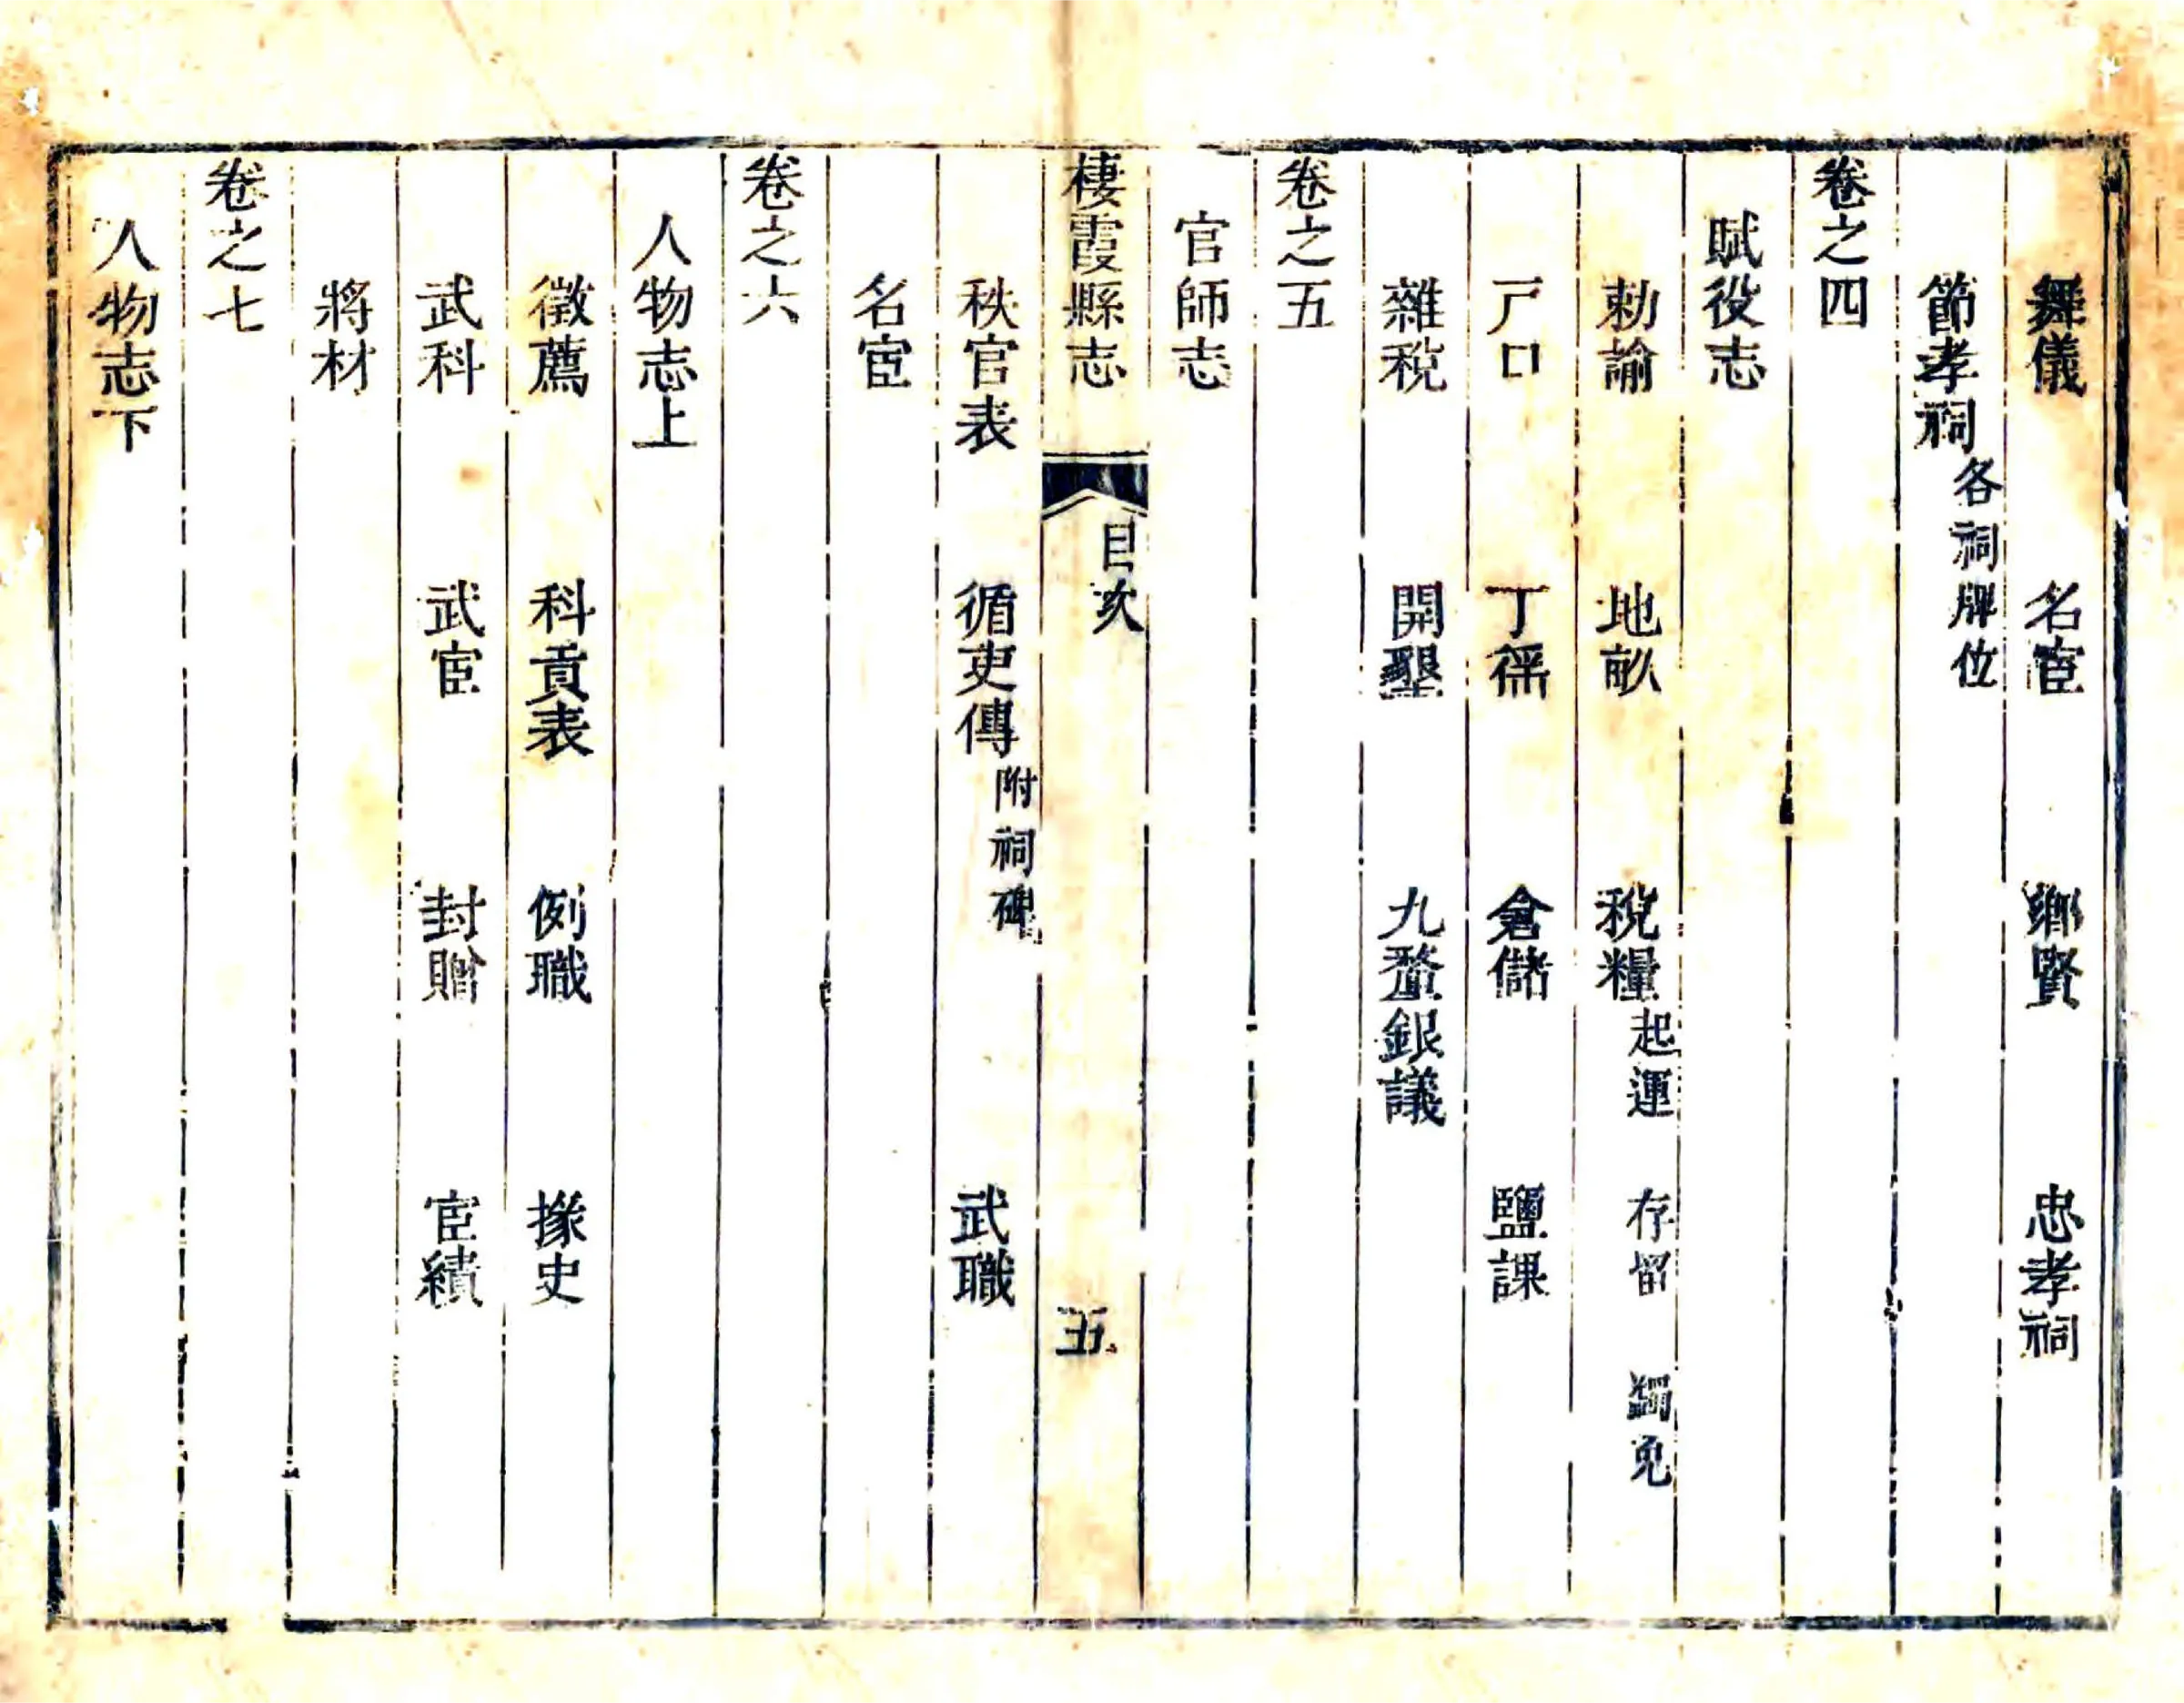 舞儀　名宦　鄉賢　忠孝祠
節孝祠各祠牌位
卷之四
賦役志
勅諭　地畝　稅糧起運　存留　蠲免
戸口　丁徭　倉儲　鹽課
雜稅　開墾　九釐銀議
卷之五
官師志
棲霞縣志　目次　五
秩官表　循吏傳附祠碑　武職
名宦
卷之六
人物志上
徵薦　科貢表　例職　掾史
武科　武宦　封贈　宦績
將材
卷之七
人物志下